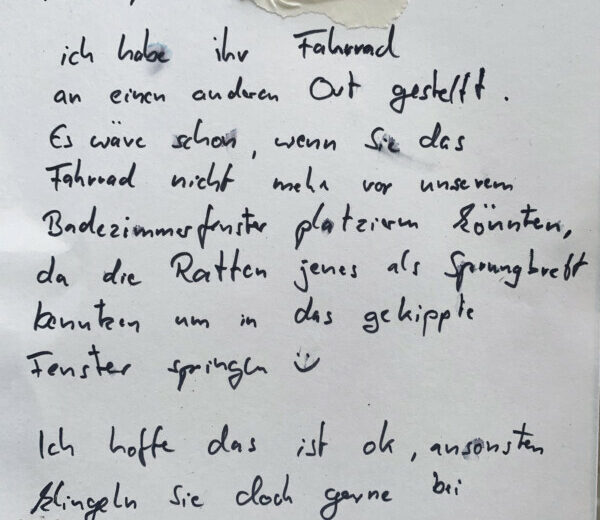 ich habe ihr Fahrrad
an einen anderen Ort gestellt.
Es wäre schon, wenn Sie das
Fahrrad nicht mehr vor unserem
Badezimmerfenster platzieren könnten,
da die Ratten jenes als Sprungbrett
benutzen um in das gekippte
Fenster springen
Ich hoffe das ist ok, ansonsten
klingeln Sie doch gerne bei